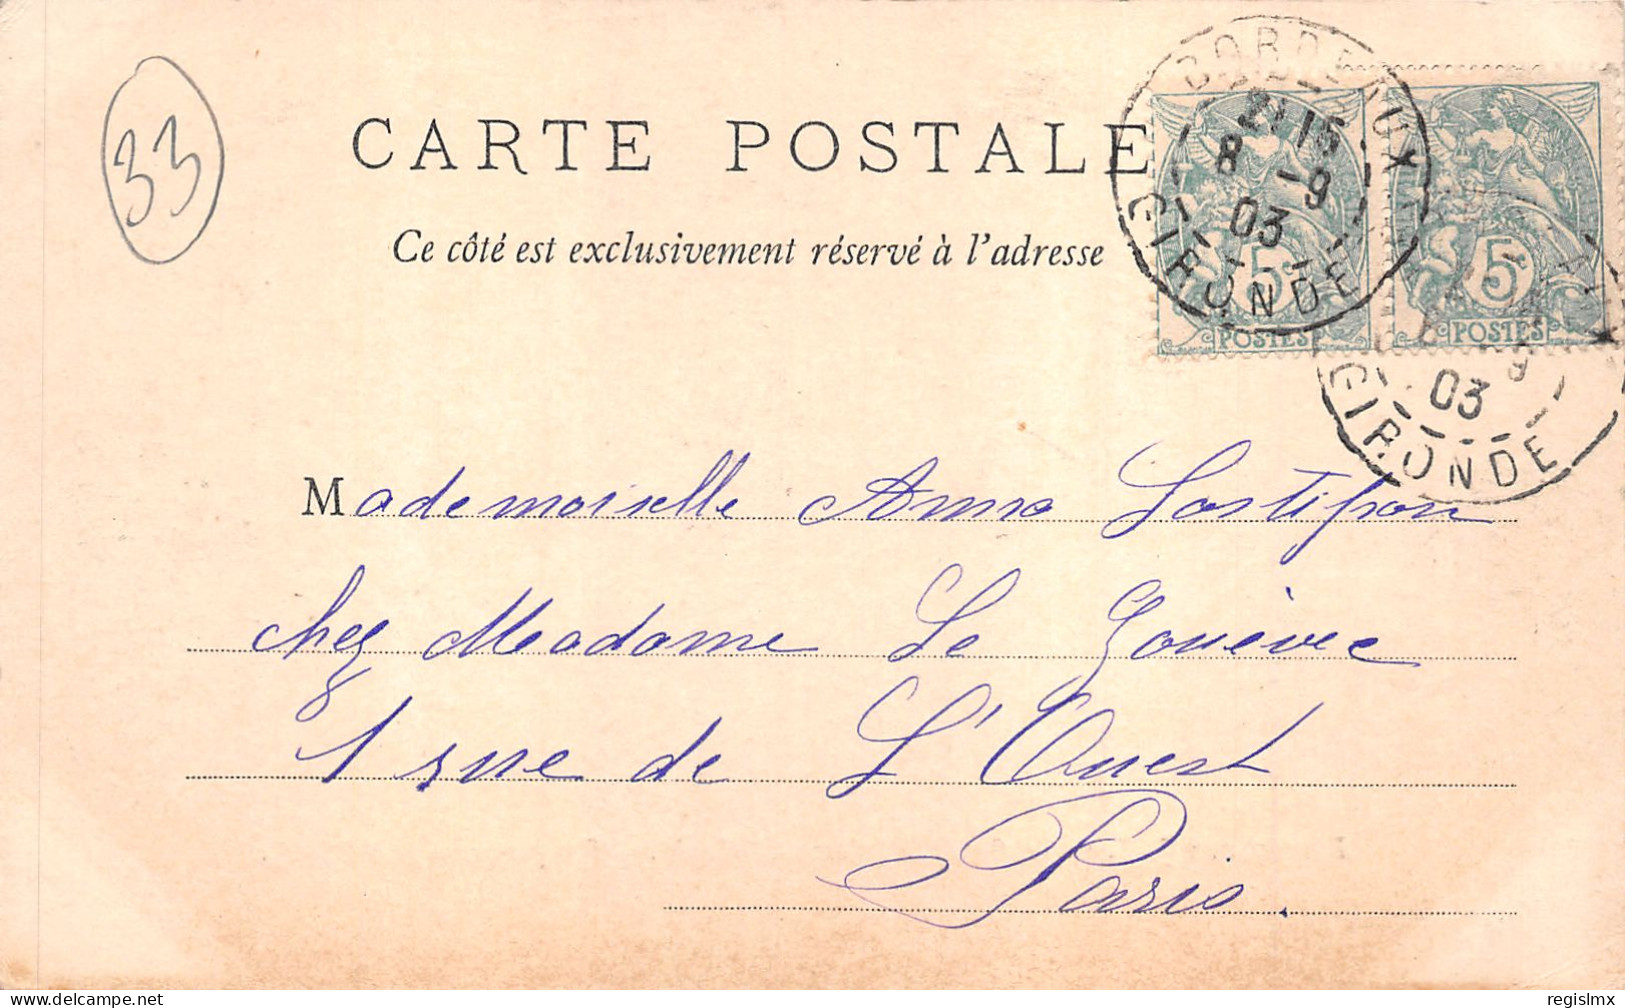 33
CARTE POSTALE
Ce côté est exclusivement réservé à l'adresse
BORDEAUX
21 15
8 -9
03
GIRONDE
5
POSTES
5
POSTES
9
03
GIRONDE
Mademoiselle Anna Lostifson
chez Madame Le Gouëvec
81 rue de L'Ouest
Paris.
delcampe.net
regislmx